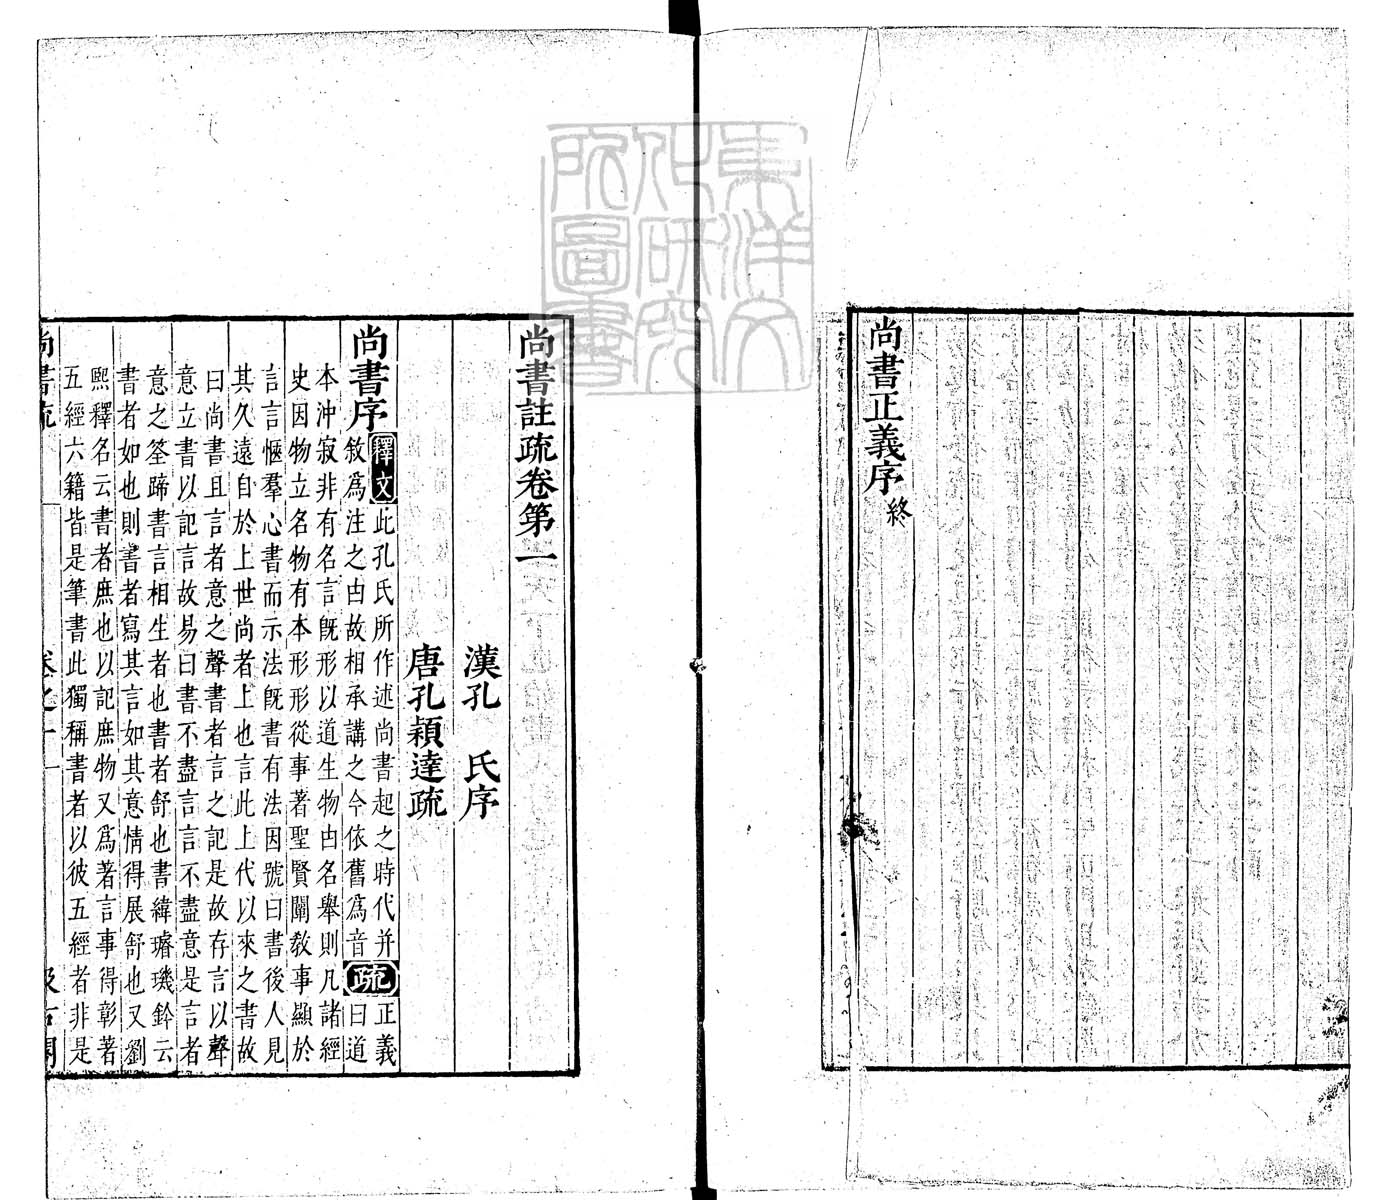 東洋文
化研究
所圖書
尚書正義序終
尚書註疏卷第一
漢孔　氏序
唐孔穎達疏
尚書序 釋文 此孔氏所作述尚書起之時代并
敘爲注之由故相承講之今依舊爲音 疏 正義
曰道
本沖寂非有名言旣形以道生物由名舉則凡諸經
史因物立名物有本形形從事著聖賢闡敎事顯於
言言愜羣心書而示法旣書有法因號曰書後人見
其久遠自於上世尚者上也言此上代以來之書故
曰尚書且言者意之聲書者言之記是故存言以聲
意立書以記言故易曰書不盡言言不盡意是言者
意之筌蹄書言相生者也書者舒也書緯璿璣鈐云
書者如也則書者寫其言如其意情得展舒也又劉
熙釋名云書者庶也以記庶物又爲著言事得彰著
五經六籍皆是筆書此獨稱書者以彼五經者非是
尚書疏 卷之一 汲古閣